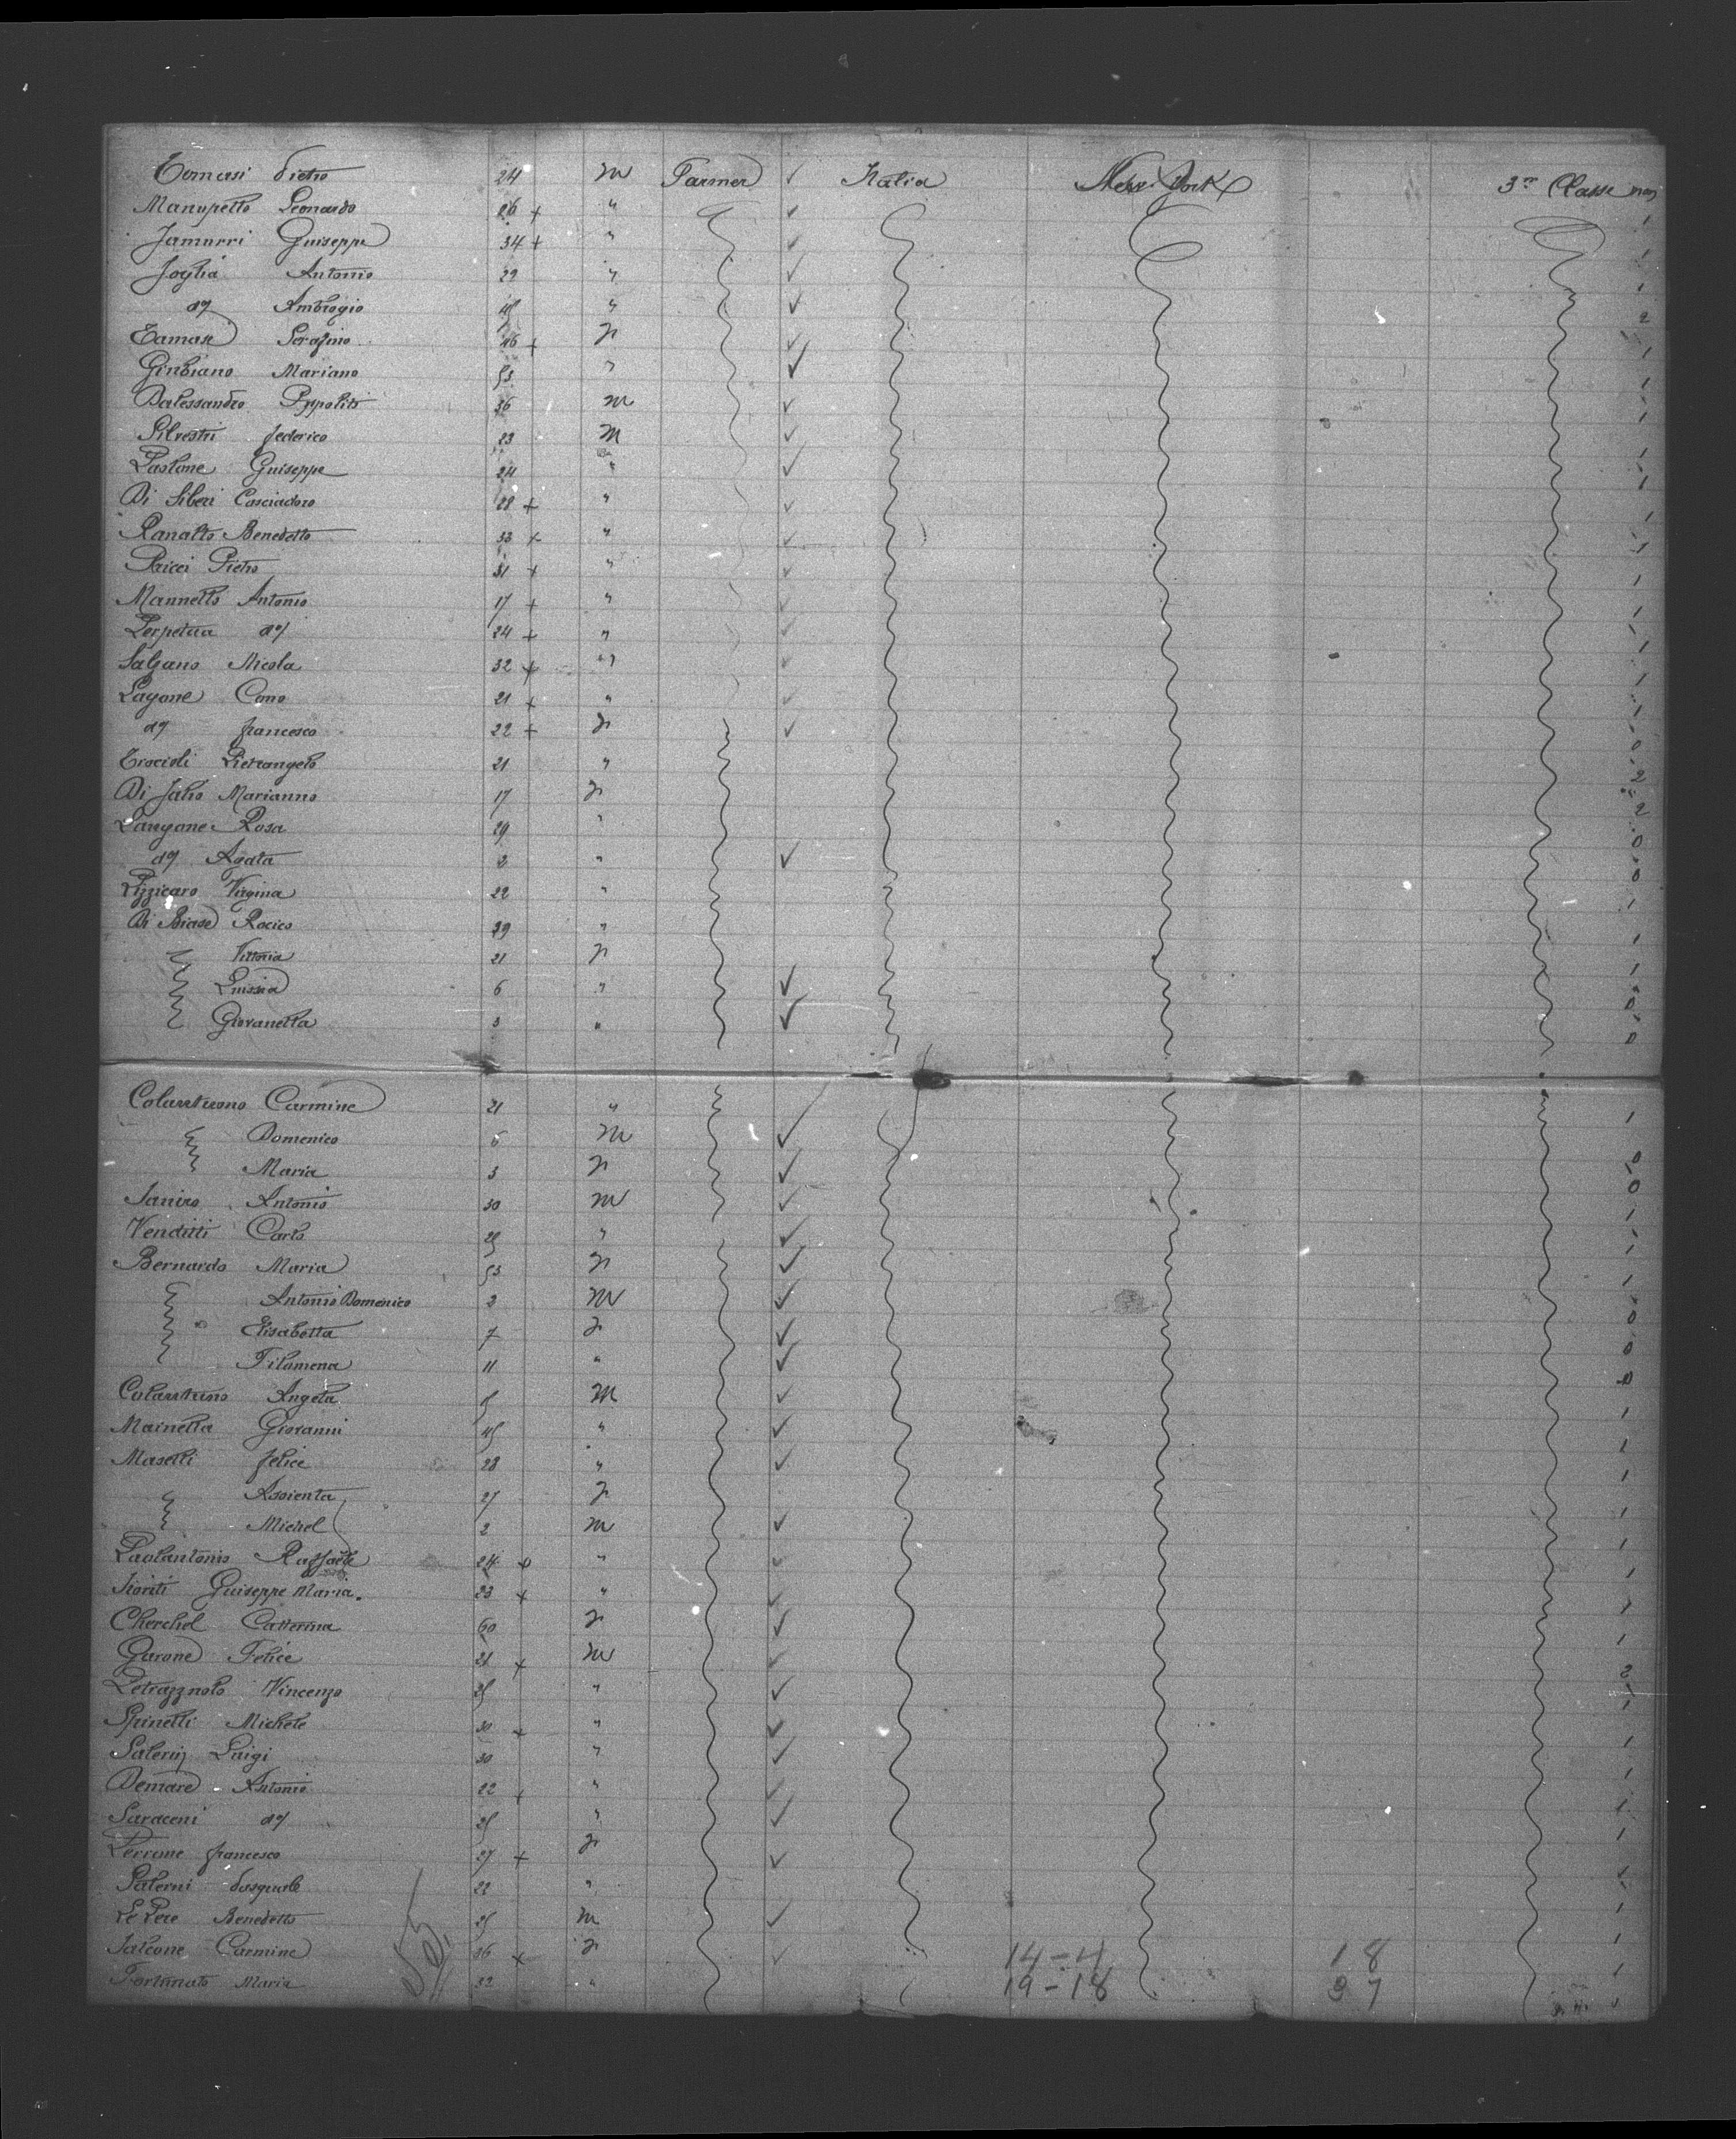 Tomasi Pietro 24 M Farmer ✓ Italia New-York 3me Classe
Manupello Leonardo 26 + " ✓ 1
Jamurri Guiseppe 34 + " ✓ 1
Joglia Antonio 29 " ✓ 1
dº Ambrogio 45 " ✓ 2
Tamasi Serafino 46 + F ✓ 1
Ginbiano Mariano 53 " ✓ 1
Dalessandro Ippolito 36 M ✓ 1
Silvestri federico 23 M ✓ 1
Pastone Guiseppe 24 " ✓ 1
Di Siberi Casciadoro 28 + " ✓ 1
Ranallo Benedetto 33 + " ✓ 1
Ricci Pietro 31 + " ✓ 1
Mannello Antonio 17 + " ✓ 1
Perpetua dº 24 + " ✓ 1
Salzano Nicola 32 + " ✓ 1
Lagone Cono 21 + " ✓ 1
dº francesco 22 + F ✓ 0
Crocioli Pietrangelo 21 " 2
Di Jalio Marianno 17 F 2
Langone Rosa 29 " 0
dº Agata 2 " ✓ 0
Pizzicaro Virgina 22 " 1
Di Biase Rocico 39 " 1
Vittoria 21 F 1
Luisia 6 " ✓ 0
Giovanella 3 " ✓ 0
Colantuono Carmine 21 " 1
Domenico 5 M ✓ 0
Maria 3 F ✓ 0
Janiro Antonio 30 M ✓ 1
Venditti Carlo 25 " ✓ 1
Bernardo Maria 53 F ✓ 1
Antonio Domenico 2 M ✓ 0
Elisabetta 7 F ✓ 0
Filomena 11 " ✓ 0
Colantuono Angela M ✓ 1
Mainella Giovanni 45 " ✓ 1
Maselli felice 28 " ✓ 1
Assienta 27 F 1
Michel 2 M ✓ 1
Paolantonio Raffaele 24 " ✓ 1
Fioriti Guiseppe Maria. 23 + " ✓ 1
Cherchel Catterina 60 F ✓ 1
Garone Felice 21 + M ✓ 2
Petrazznolo Vincenzo 35 " ✓ 1
Spinelli Michele 30 + " ✓ 1
Salerni Luigi 30 " ✓ 1
Demare Antonio 22 + " ✓ 1
Saraceni dº 25 " ✓ 1
Perrone francesco 27 + F ✓ 1
Paterni Pasquale 22 " 1
Le Pere Benedetto 25 M ✓ 1
Falcone Carmine 26 + F ✓ 14-4 18 1
Fortunato Maria 32 " 19-18 37 1